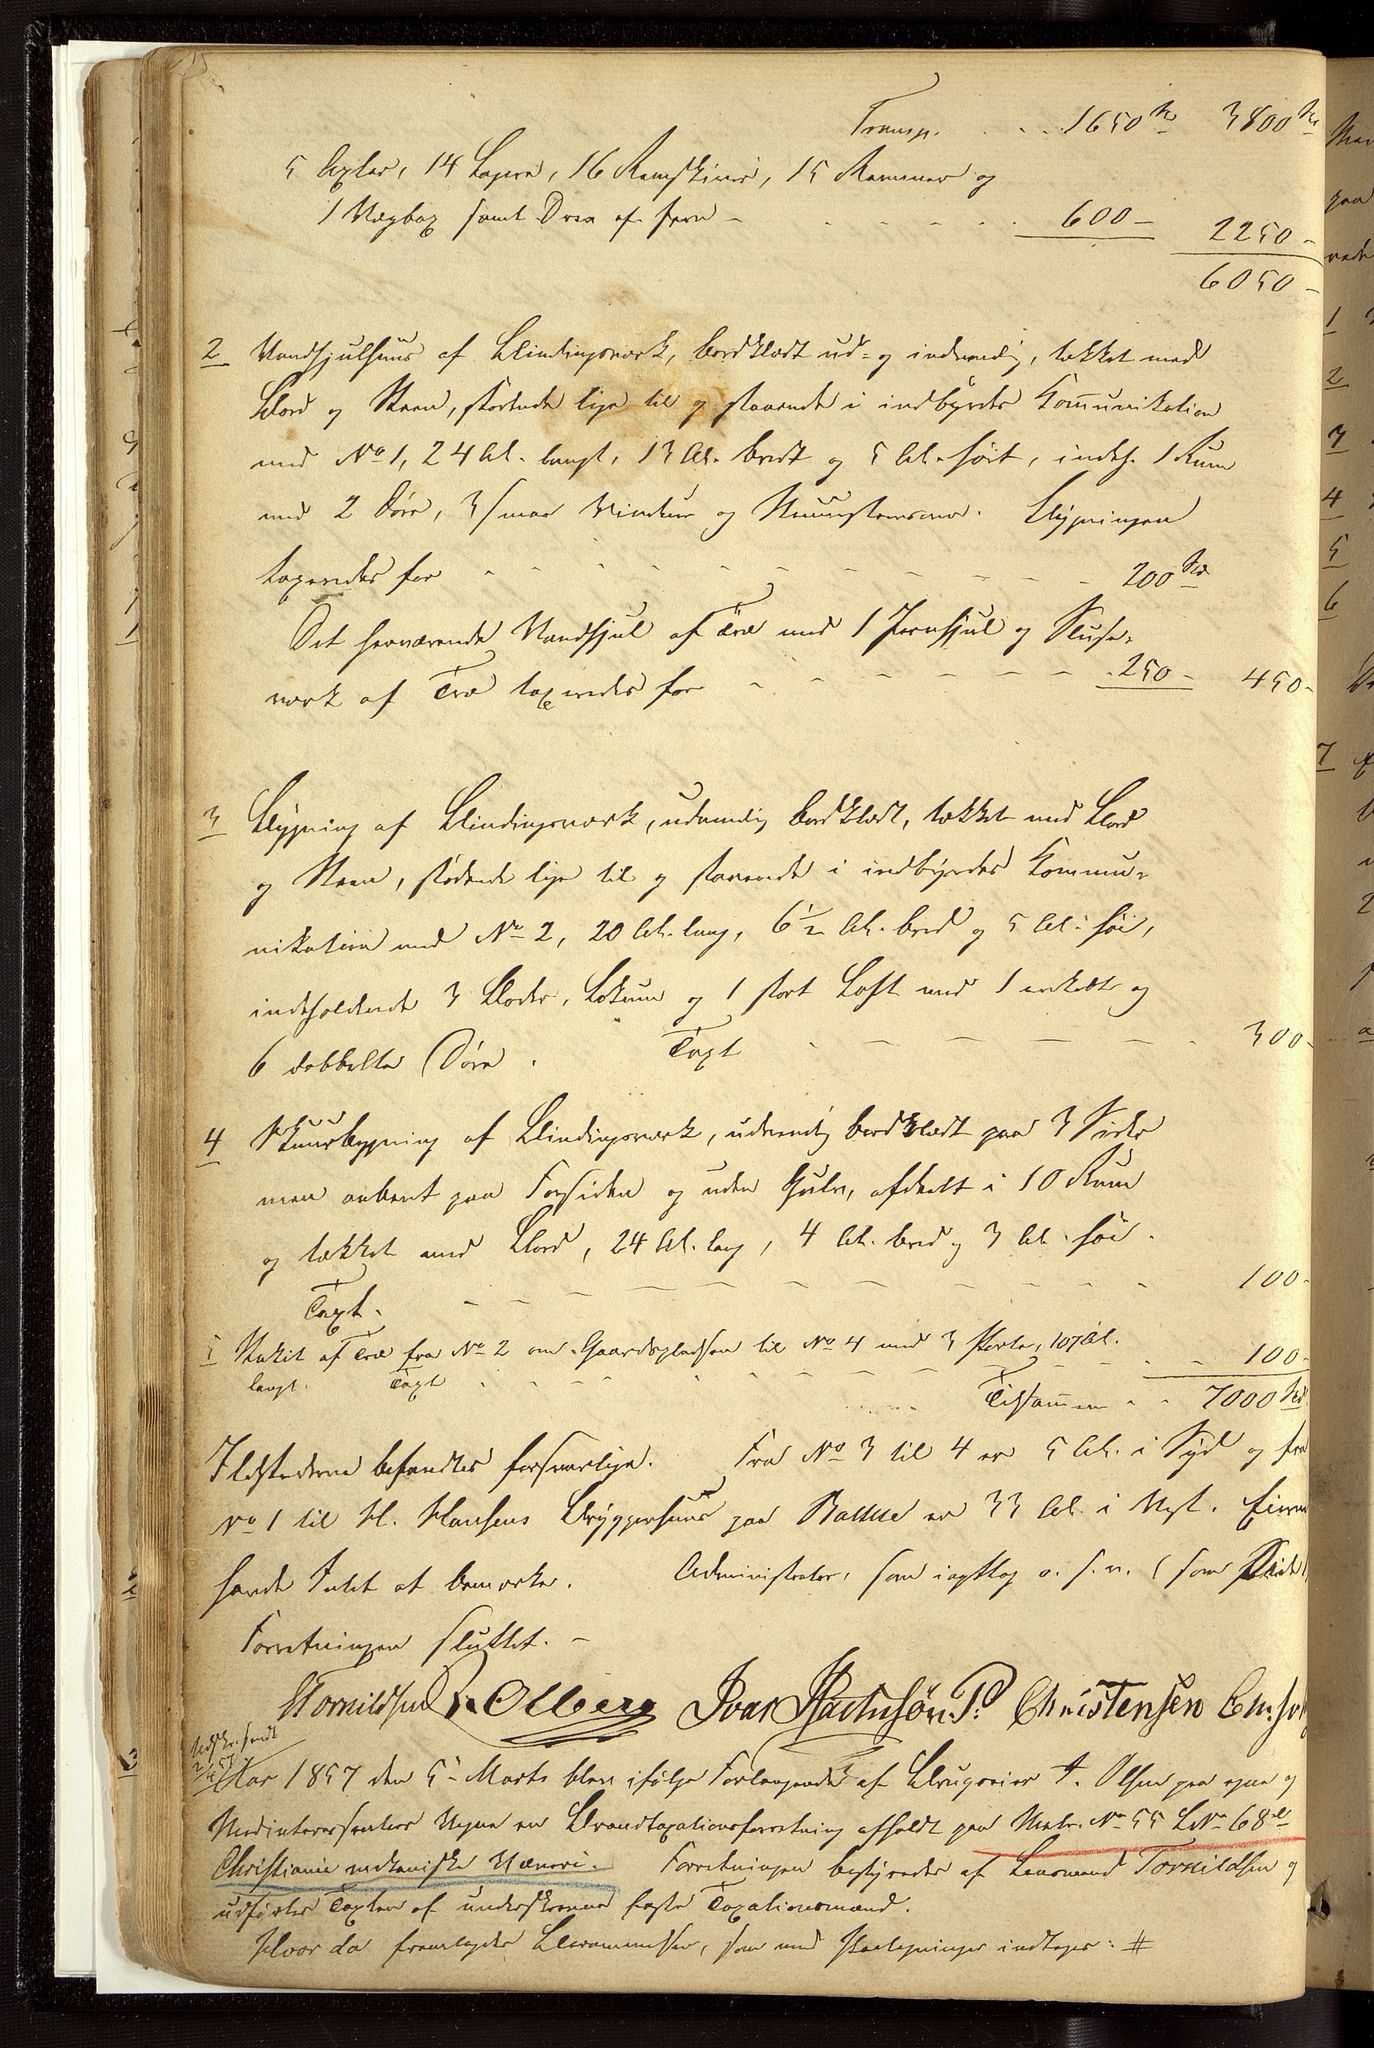 Transp. . . . 1650 Sp 3800 Sp
5 Axler, 14 Lagere, 16 Remskiver, 15 Remmer og
1 Vægbox samt Drev af Jern - . . . . . 600 - 2250 -
6050 -
2 Vandhjulhuus af Bindingsværk, bordklædt ud= og indvendig, tækket med
Bord og Steen, stødende lige til og staaende i indbyrdes Kommunikation
med No 1, 24 Al. langt, 13 Al. bredt og 5 Al. høit, indeh. 1 Rum
med 2 Døre, 3 smaa Vinduer og Muurstensmur. Bygningen
taxeredes for - - - - - - - - - - 200 Spd
Det herværende Vandhjul af Træ med 1 Jernhjul og Sluse=
værk af Træ taxeredes for - - - - - - - 250 - 450 -
3 Bygning af Bindingsværk, udvendig bordklædt, tækket med Bord
og Steen, stødende lige til og staaende i indbyrdes Kommu=
nikation med No 2, 20 Al. lang, 6 1/2 Al. bred og 5 Al. høi,
indeholdende 3 Boder, Lokum og 1 stort Loft med 1 enkelt og
6 dobbelte Døre. Taxt - - - - - 300 -
4 Skuurbygning af Bindingsværk, udvendig bordklædt paa 3 Sider
men aabent paa Forsiden og uden Gulv, afdeelt i 10 Rum
og tækket med Bord, 24 Al. lang, 4 Al. bred og 3 Al. høi.
Taxt. - - - - - - - - - - 100 -
5 Stakit af Træ fra No 2 om Gaardspladsen til No 4 med 3 Porte, 107 Al.
langt. Taxt - - - - - - - - - - 100 -
Tilsammen - - 7000 Spd
Ildstederne befandtes forsvarlige. Fra No 3 til 4 er 5 Al. i Syd og fra
No 1 til H. Hansens Bryggerhuus paa Bakke er 33 Al. i Vest. Eieren
havde Intet at bemærke. Administrator, som iagttog o. s. v. (som Side
Forretningen sluttet. -
Tornildsen Olberg Ivar P. Christensen
Udskr. sendt
Aar 1857 den 5te Marts blev ifølge Forlangende af Brugseier A. Olsen paa egne og
Medinteressenters Vegne en Brandtaxationsforretning afholdt paa Matr. No 55 L No 68
Christiania mekaniske Væveri. Forretningen bestyredes af Lensmand Tornildsen og
udførtes Taxten af underskrevne faste Taxationsmænd.
Hvor da fremlagdes Berammelsen, som med Paategninger indtages: #